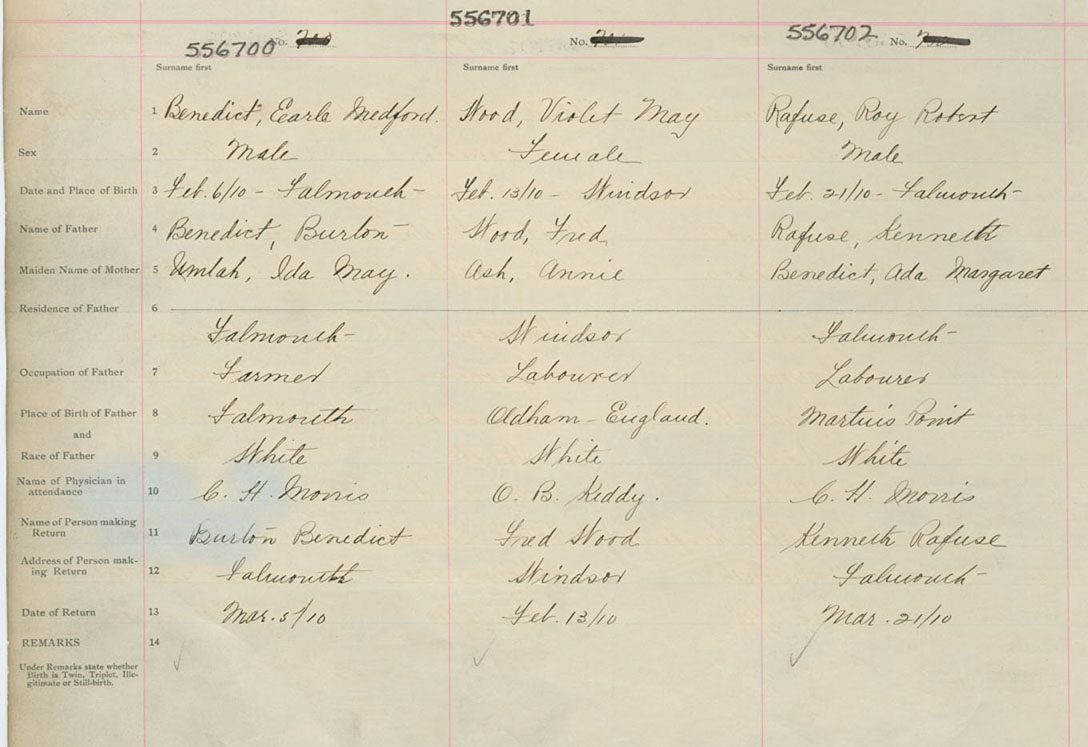 556700 No. 556701 No. 556702 No.
Surname first Surname first Surname first
Name 1 Benedict, Earle Medford. Wood, Violet May Rafuse, Roy Robert
Sex 2 Male Female Male
Date and Place of Birth 3 Feb. 6/10 - Falmouth - Feb. 13/10 - Windsor Feb. 21/10 - Falmouth -
Name of Father 4 Benedict, Burton Wood, Fred Rafuse, Kenneth
Maiden Name of Mother 5 Umlah, Ida May. Ash, Annie Benedict, Ada Margaret
Residence of Father 6
Falmouth Windsor Falmouth
Occupation of Father 7 Farmer Labourer Labourer
Place of Birth of Father 8 Falmouth Oldham - England. Martin's Point
and
Race of Father 9 White White White
Name of Physician in
attendance 10 C. H. Morris O. B. Keddy. C. H. Morris
Name of Person making
Return 11 Burton Benedict Fred Wood Kenneth Rafuse
Address of Person mak-
ing Return 12 Falmouth Windsor Falmouth
Date of Return 13 Mar. 5/10 Feb. 13/10 Mar. 21/10
REMARKS 14
Under Remarks state whether
Birth is Twin, Triplet, Ille-
gitimate or Still-birth.